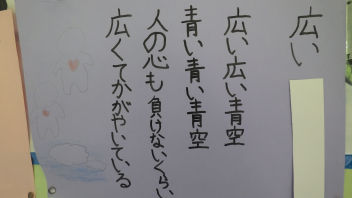 広い
広い広い青空
青い青い青空
人の心も負けないくらい
広くてかがやいている